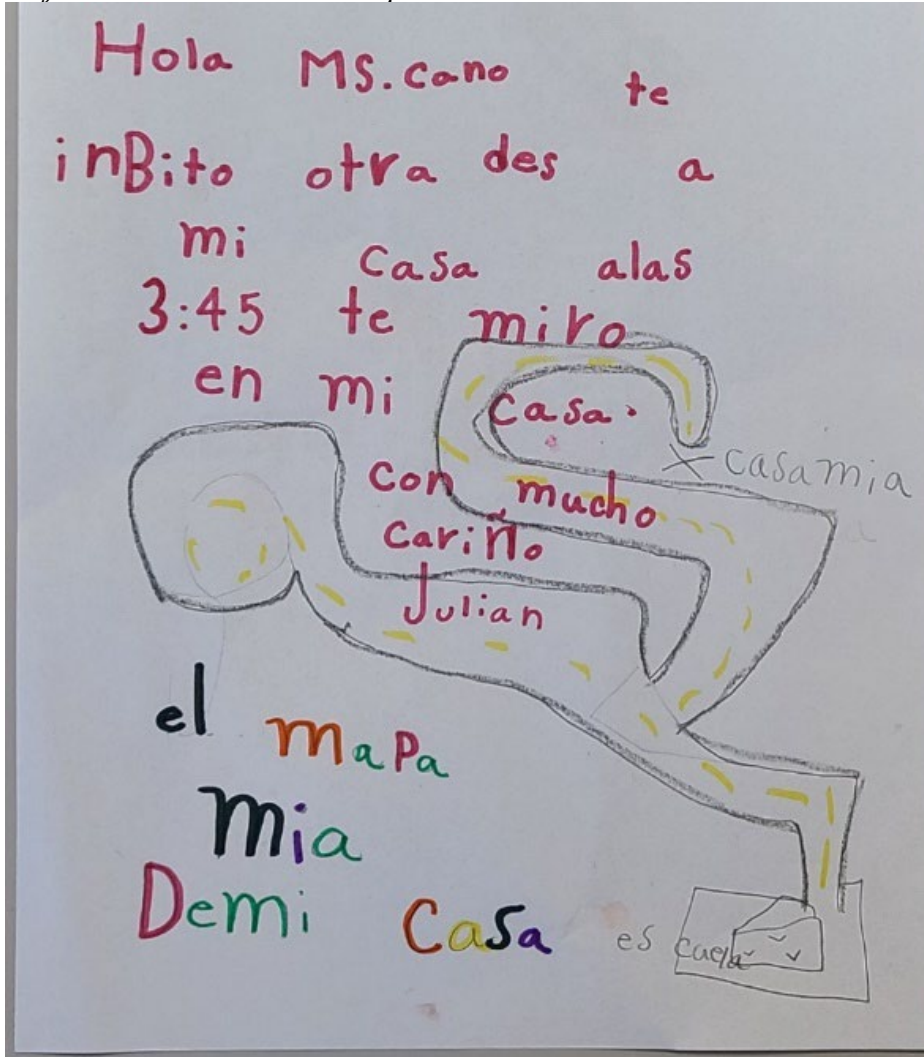 Hola Ms. cano te
inBito otra des a
mi casa alas
3:45 te miro
en mi casa.
X casa mia
con mucho
cariño
Julian
el mapa
mia
Demi Casa
es cuela